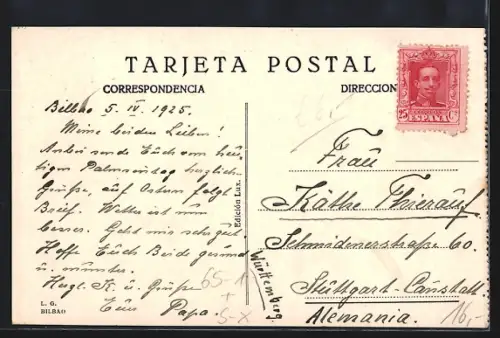 TARJETA POSTAL
CORRESPONDENCIA
DIRECCION
Bilbao 5. IV. 1925.
Meine beiden Lieben!
Anbei sende Euch vom heu-
tigen Palmsonntag herzliche
Grüße, auf Ostern folgt
Brief. Wetter ist nun
besser. Geht mir sehr gut.
Hoffe Euch Beide gesund
u. munter.
Herzl. K. u. Grüße
Euer Papa.
L. G.
BILBAO
Edición Lux.
25 Cs
ESPAÑA
Frau
Käthe Thierauf
Schmidenerstraße 60.
Stuttgart-Canstatt
Württemberg.
Alemania.
16,-